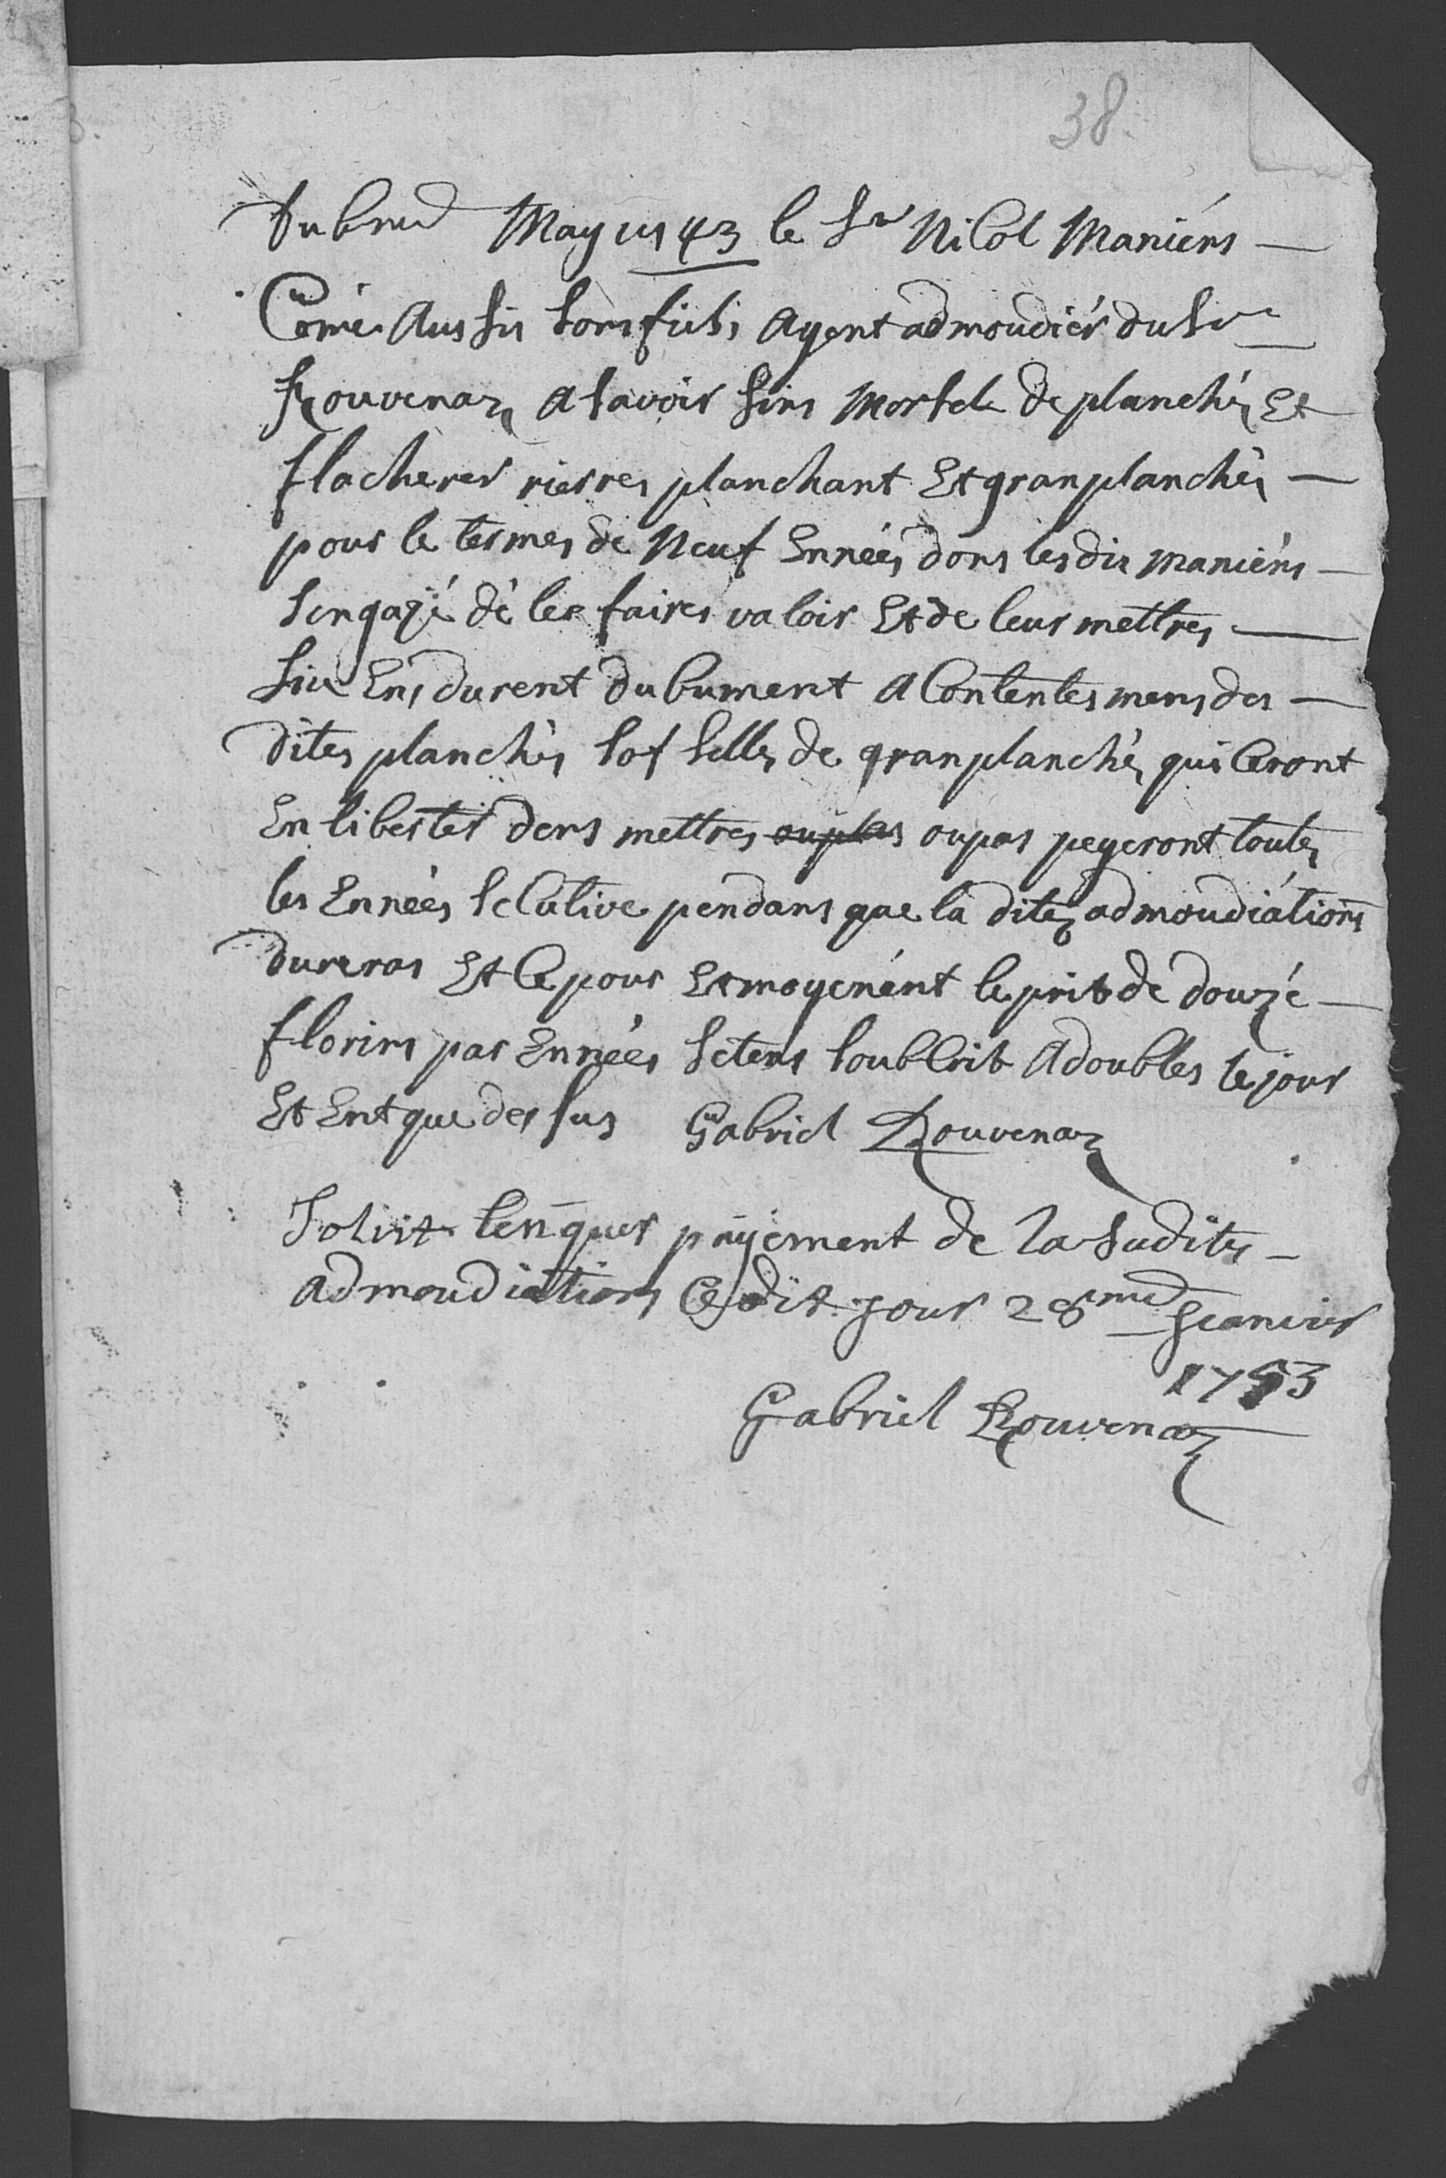 38.
Du 6me May 1743 le Sr Nicol Maniéns —
Comé Aussis sons fiels Ayent admoudiér du Sr
Rouvenaz A savoir Sins Morsel de planché Et
flacheres rierres planchant Et granplanchés —
pour le termes de Neuf Ennées dons les dis Maniéns —
Sengajé dé les faires valoir Et de leur mettres —
Six Ens durent du bument A Contentes mens des —
dites planchés sof selles de granplanché qui Ceront
En libertér dens mettres oupas oupas peyeront toutes
les Ennées secutive pendans que la dites admoudiations
dureras Et Ce pour Et moyenént le prit de douzé —
florins par Ennées setens soubscrit A doubles le jour
Et Ent que dessus Gabriel Rouvenaz
Solvit lenquer payement de la sudites —
admoudiations Ce dit jour 28me Jeanvier
1753
Gabriel Rouvenaz